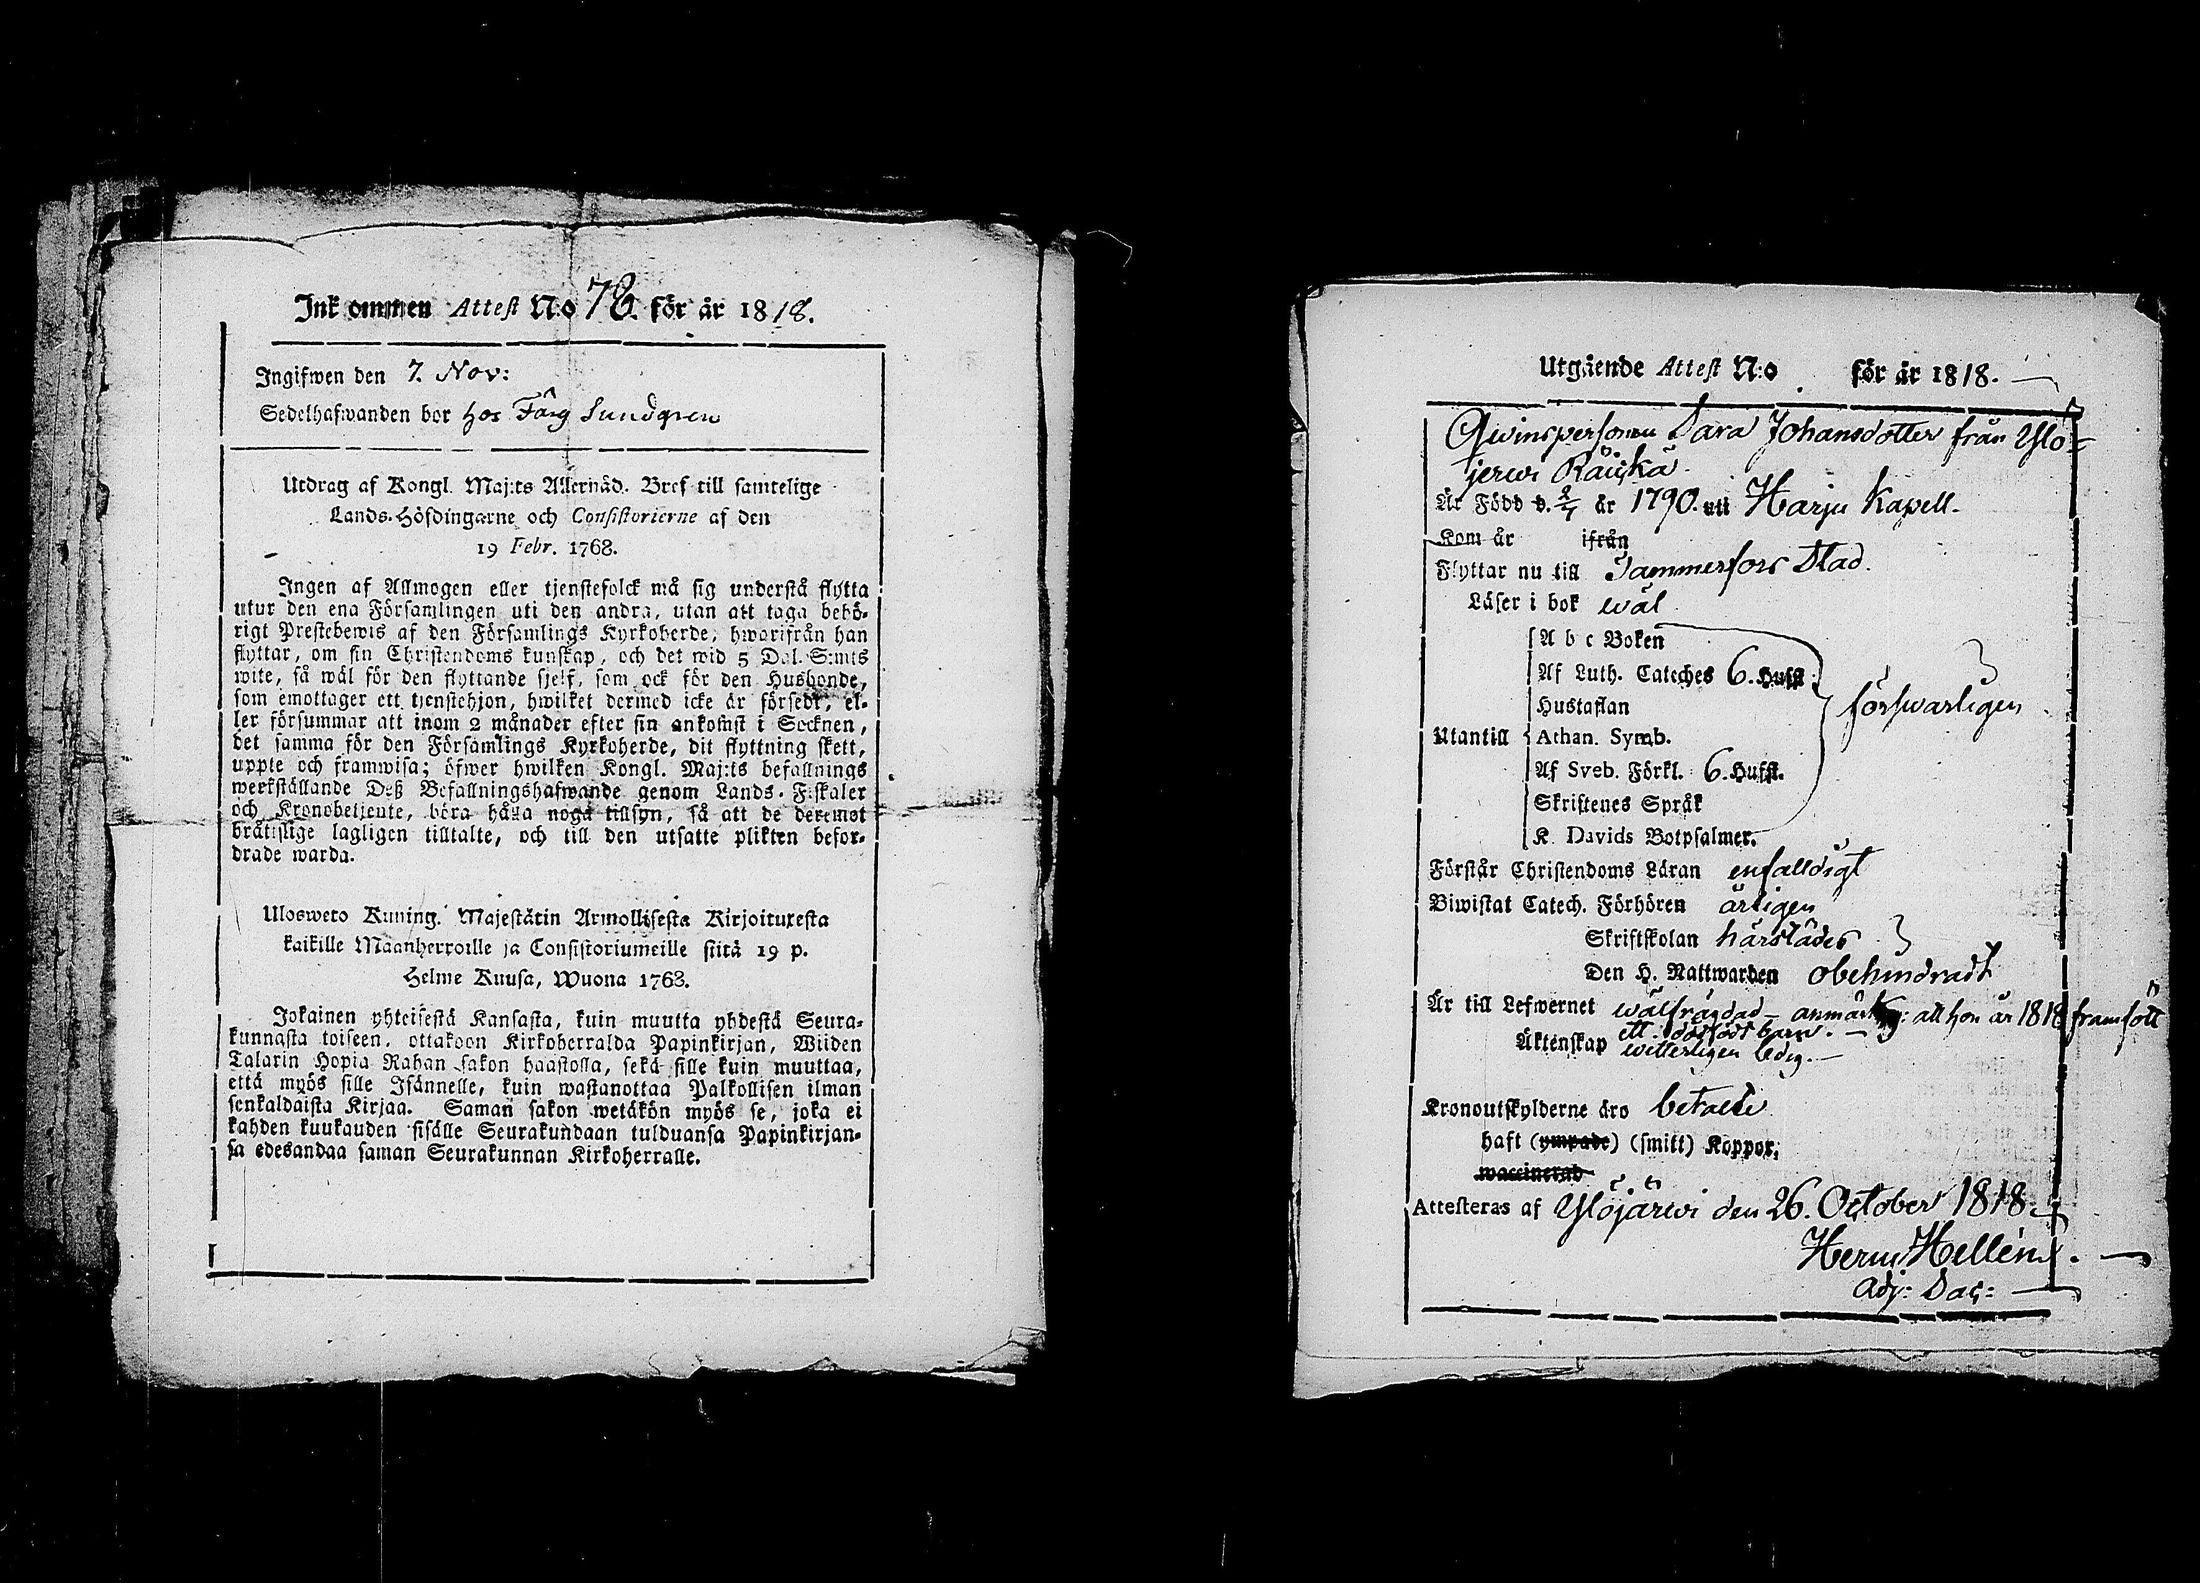 Inkommen Attest No 78. för år 1818.
Ingifwen den 7. Nov:
Sedelhafwanden bor hos Färg Sundgren
Utdrag af Kongl. Maj:ts Allernåd. Bref till samtelige
Lands-Höfdingarne och Consistorierne af den
19 Febr. 1768.
Ingen af Allmogen eller tjenstefolck må sig understå flytta
utur den ena Församlingen uti den andra, utan att taga behö-
rigt Prestebewis af den Församlings Kyrkoherde, hwarifrån han
flyttar, om sin Christendoms kunskap, och det wid 5 Dal. S:mts
wite, så wäl för den flyttande sjelf, som ock för den Husbonde,
som emottager ett tjenstehjon, hwilket dermed icke är försedt, el-
ler försummar att inom 2 månader efter sin ankomst i Socknen,
det samma för den Församlings Kyrkoherde, dit flyttning skett,
uppte och framwisa; öfwer hwilken Kongl. Maj:ts befallnings
werkställande Deß Befallningshafwande genom Lands-Fiskaler
och Kronobetjente, böra hålla noga tillsyn, så att de deremot
bråtslige lagligen tilltalte, och till den utsatte plikten befor-
drade warda.
Ulosweto Kuning. Majestätin Armollisesta Kirjoituxesta
kaikille Maanherroille ja Consistoriumeille siitä 19 p.
Helme Kuusa, Wuona 1768.
Jokainen yhteisestä Kansasta, kuin muutta yhdestä Seura-
kunnasta toiseen, ottakoon Kirkoherralda Papinkirjan, Wiiden
Talarin Hopia Rahan sakon haastolla, sekä sille kuin muuttaa,
että myös sille Isännelle, kuin wastanottaa Palkollisen ilman
senkaldaista Kirjaa. Saman sakon wetäkön myös se, joka ei
kahden kuukauden sisälle Seurakundaan tulduansa Papinkirjan-
sa edesandaa saman Seurakunnan Kirkoherralle.
Utgående Attest N:o för år 1818.
Qwinspersonen Sara Johansdotter från Ylö-
jerwi Räickä.
Är Född d. 2/7 år 1790. uti Harju Kapell.
Kom år ifrån
Flyttar nu till Tammerfors Stad.
Läser i bok wäl
A b c Boken
Af Luth. Cateches 6. Hufst.
Hustaflan
Utantill Athan. Symb. förswarligen
Af Sveb. Förkl. 6. Hufst.
Skriftenes Språk
K. Davids Botpsalmer.
Förstår Christendoms Läran enfalldigt
Biwistat Catech. Förhören årligen
Skriftskolan härstädes
Den H. Nattwarden obehindradt
Är till Lefwernet wälfrägdad - anmärkes: att hon år 1818 framfött
ett dödfödt barn.
Äktenskap witterligen ledig.
Kronoutskylderne äro betalte
haft (ympade) (smitt) Koppor,
waccinerad
Attesteras af Ylöjärwi den 26. October 1818.
Herm Hellén.
Adj: Sac: